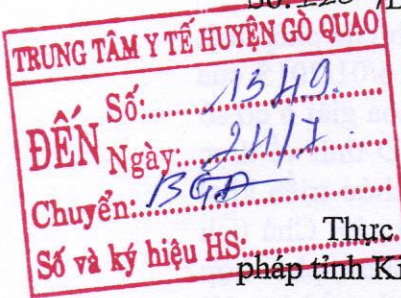 TRUNG TÂM Y TẾ HUYỆN GÒ QUAO
ĐẾN
Số: 1349.
Ngày: 24/7
Chuyển: BGĐ
Số và ký hiệu HS:
Thực
pháp tỉnh Ki